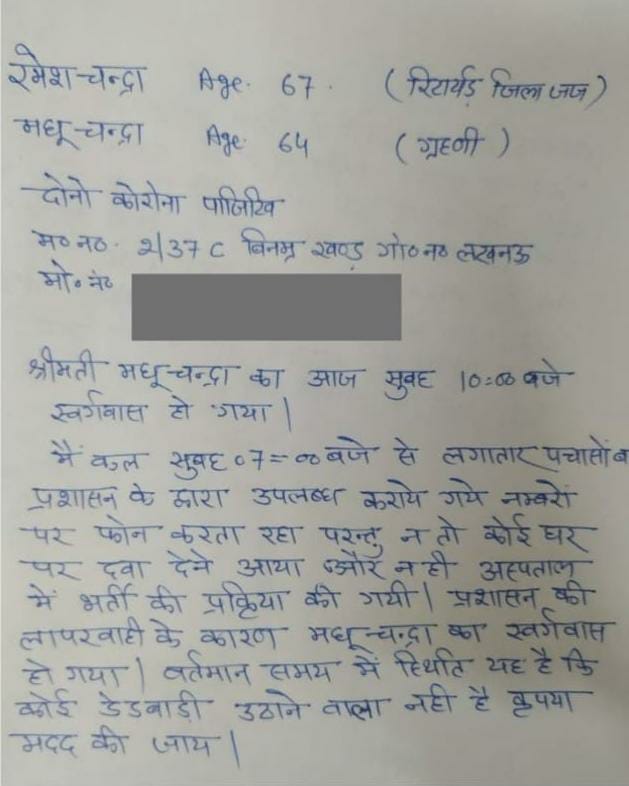 रमेश चन्द्रा Age. 67. (रिटार्यड जिला जज)
मधू चन्द्रा Age 64 (ग्रहणी)
दोनो कोरोना पाजिटिव
म० न०. 2/37 C विनम्र खण्ड गो० न० लखनऊ
मो० नं०
श्रीमती मधू चन्द्रा का आज सुवह 10=00 बजे
स्वर्गवास हो गया |
मैं कल सुवह 07=00 बजे से लगातार पचासों ब
प्रशासन के द्वारा उपलब्ध कराये गये नम्बरों
पर फोन करता रहा परन्तु न तो कोई घर
पर दवा देने आया और न ही अस्पताल
में भर्ती की प्रक्रिया की गयी | प्रशासन की
लापरवाही के कारण मधू चन्द्रा का स्वर्गवास
हो गया | वर्तमान समय में स्थिति यह है कि
कोई डेडबाडी उठाने वाला नही है कृपया
मदद की जाय |